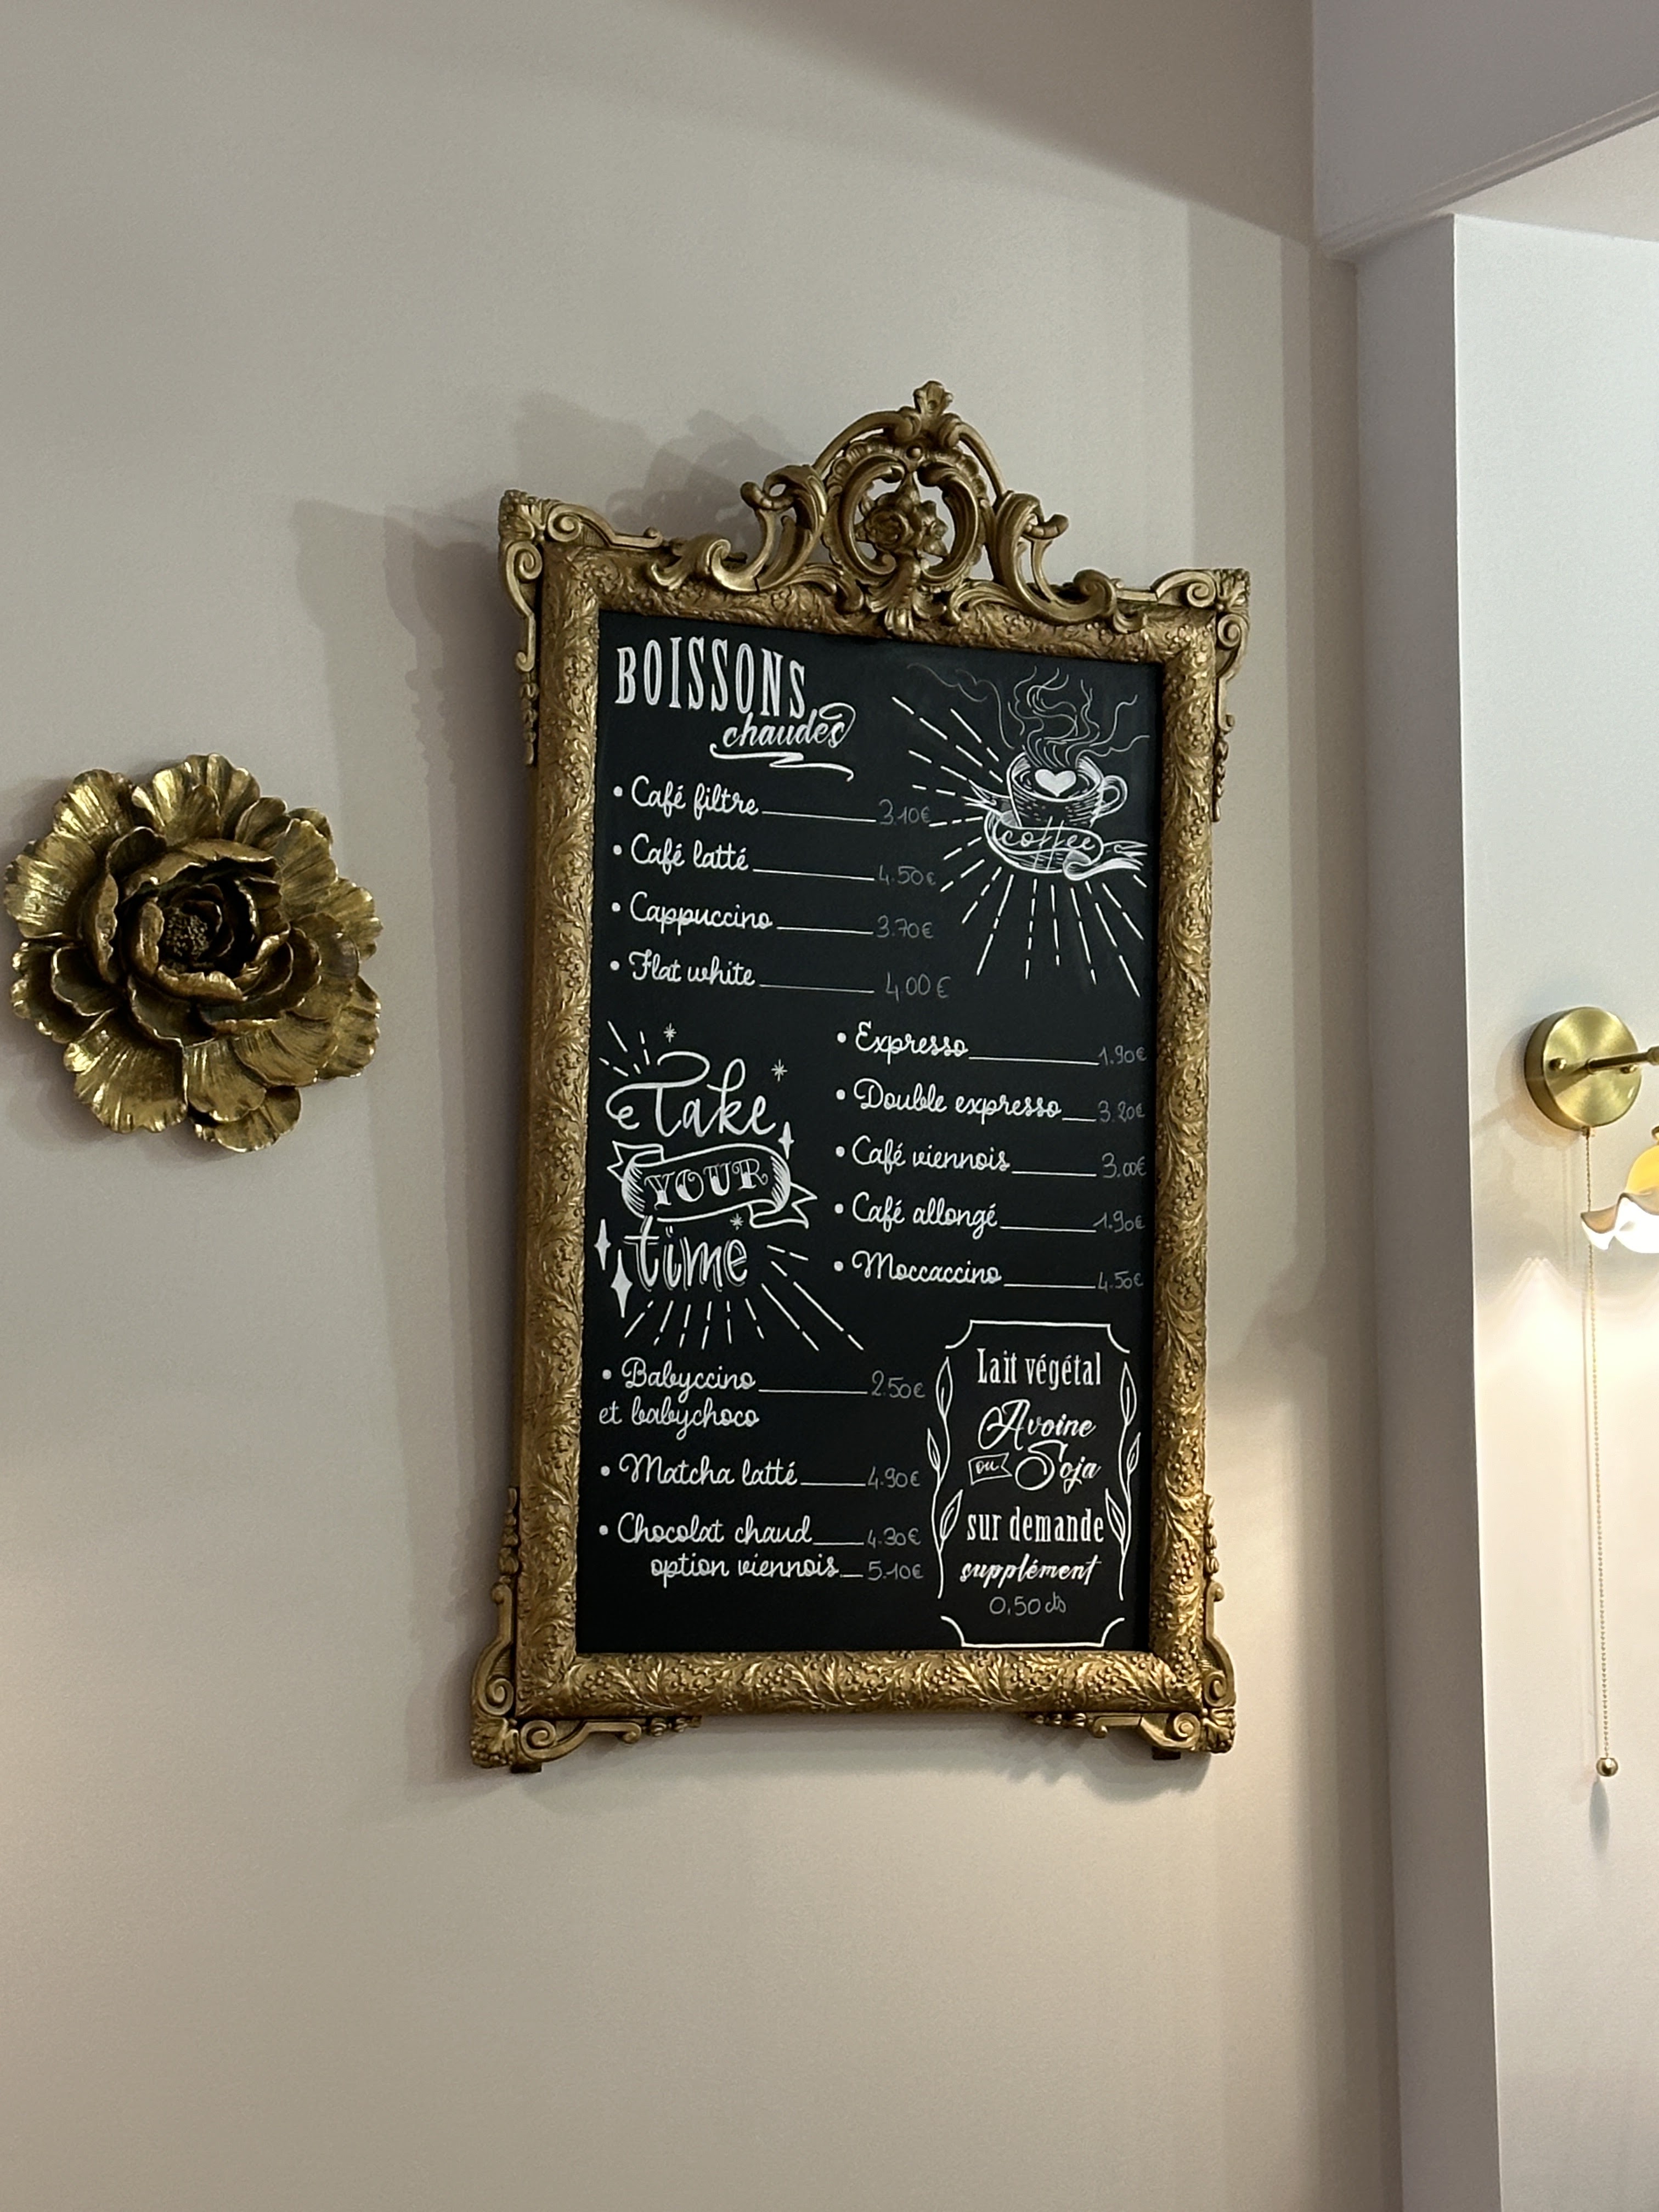 BOISSONS
chaudes
• Café filtre 3.10€
• Café latté 4.50€
• Cappuccino 3.70€
• Flat white 4.00€
coffee
• Expresso 1.90€
• Double expresso 3.20€
• Café viennois 3.00€
• Café allongé 1.90€
• Moccaccino 4.50€
Take
YOUR
time
• Babyccino 2.50€
et babychoco
• Matcha latté 4.90€
• Chocolat chaud 4.30€
option viennois 5.10€
Lait végétal
Avoine
ou Soja
sur demande
supplément
0,50 cts